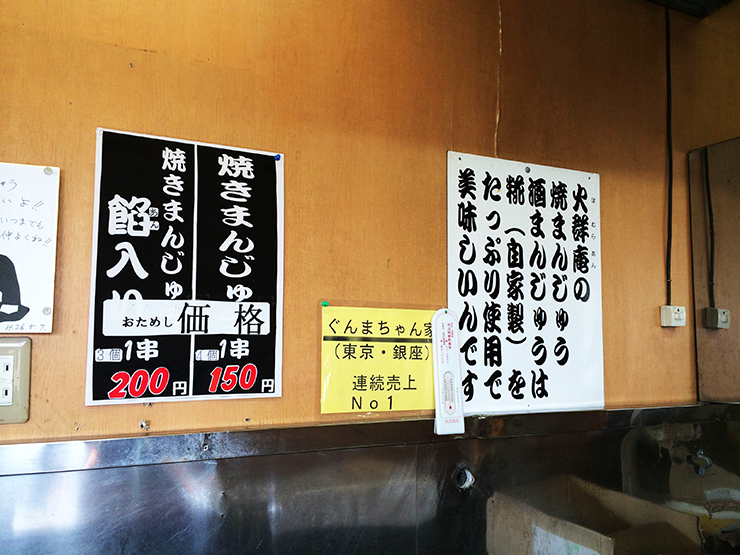 いよ!!
いつまでも
仲よくね!!
焼きまんじゅ
焼きまんじゅ
あん
餡入り
おためし価格
1串
150円
3個
1串
200円
ぐんまちゃん家
(東京・銀座)
連続売上
No1
ほむらあん
火群庵の
焼まんじゅう
酒まんじゅうは
糀(自家製)を
たっぷり使用で
美味しいんです